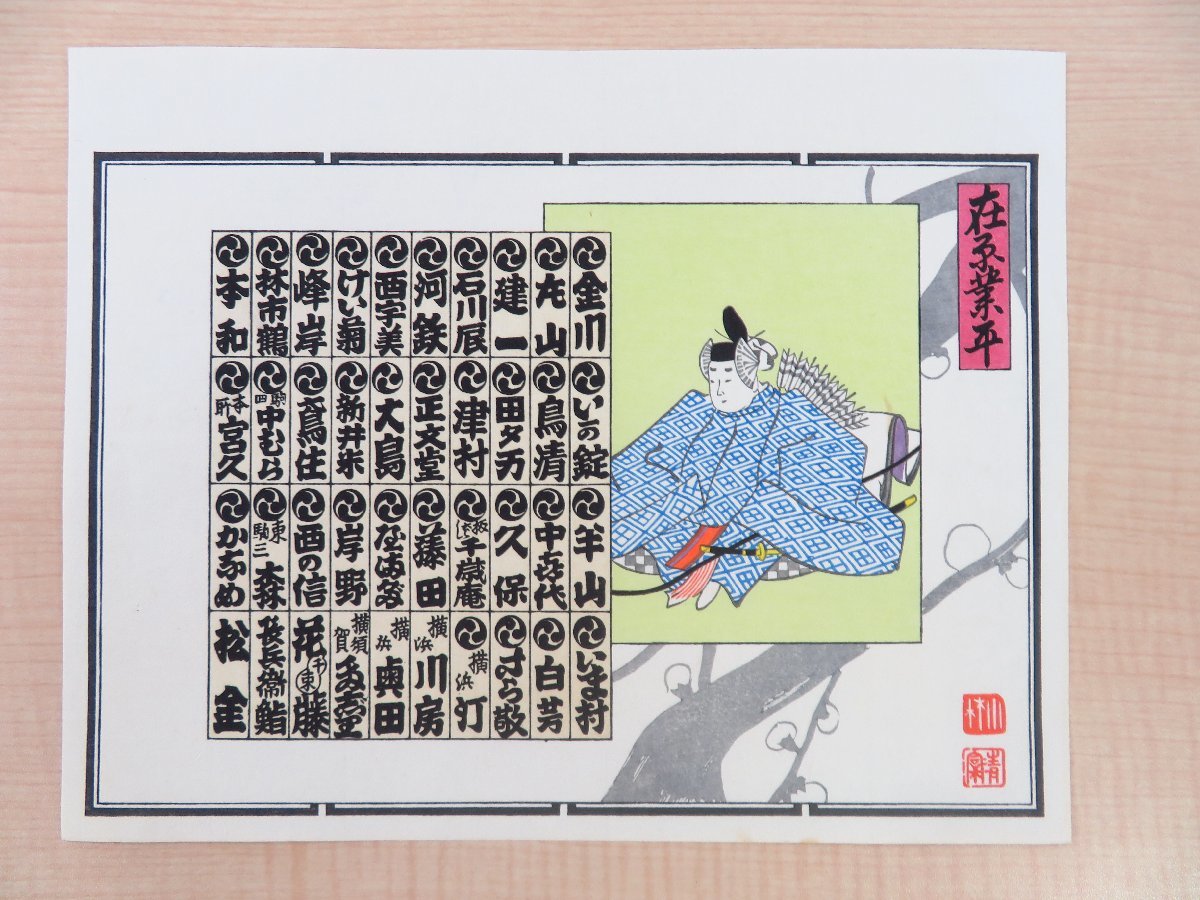 在原業平
金川
左山
建一
石川辰
河鉄
西宇美
けい菊
峰岸
林市鶴
本和
いの錠
鳥清
田夕力
津村
正文堂
大島
新井米
鳶住
駒四 中むら
本所 宮久
半山
中㐂代
久保
板伝 千歳庵
藤田
岸野
西の信
東駒三 森
かなめ
いま村
白芳
さら敬
横浜 汀
横浜 川房
横浜 奥田
横須賀
花藤
長兵衞鮨
松金
小林
清富